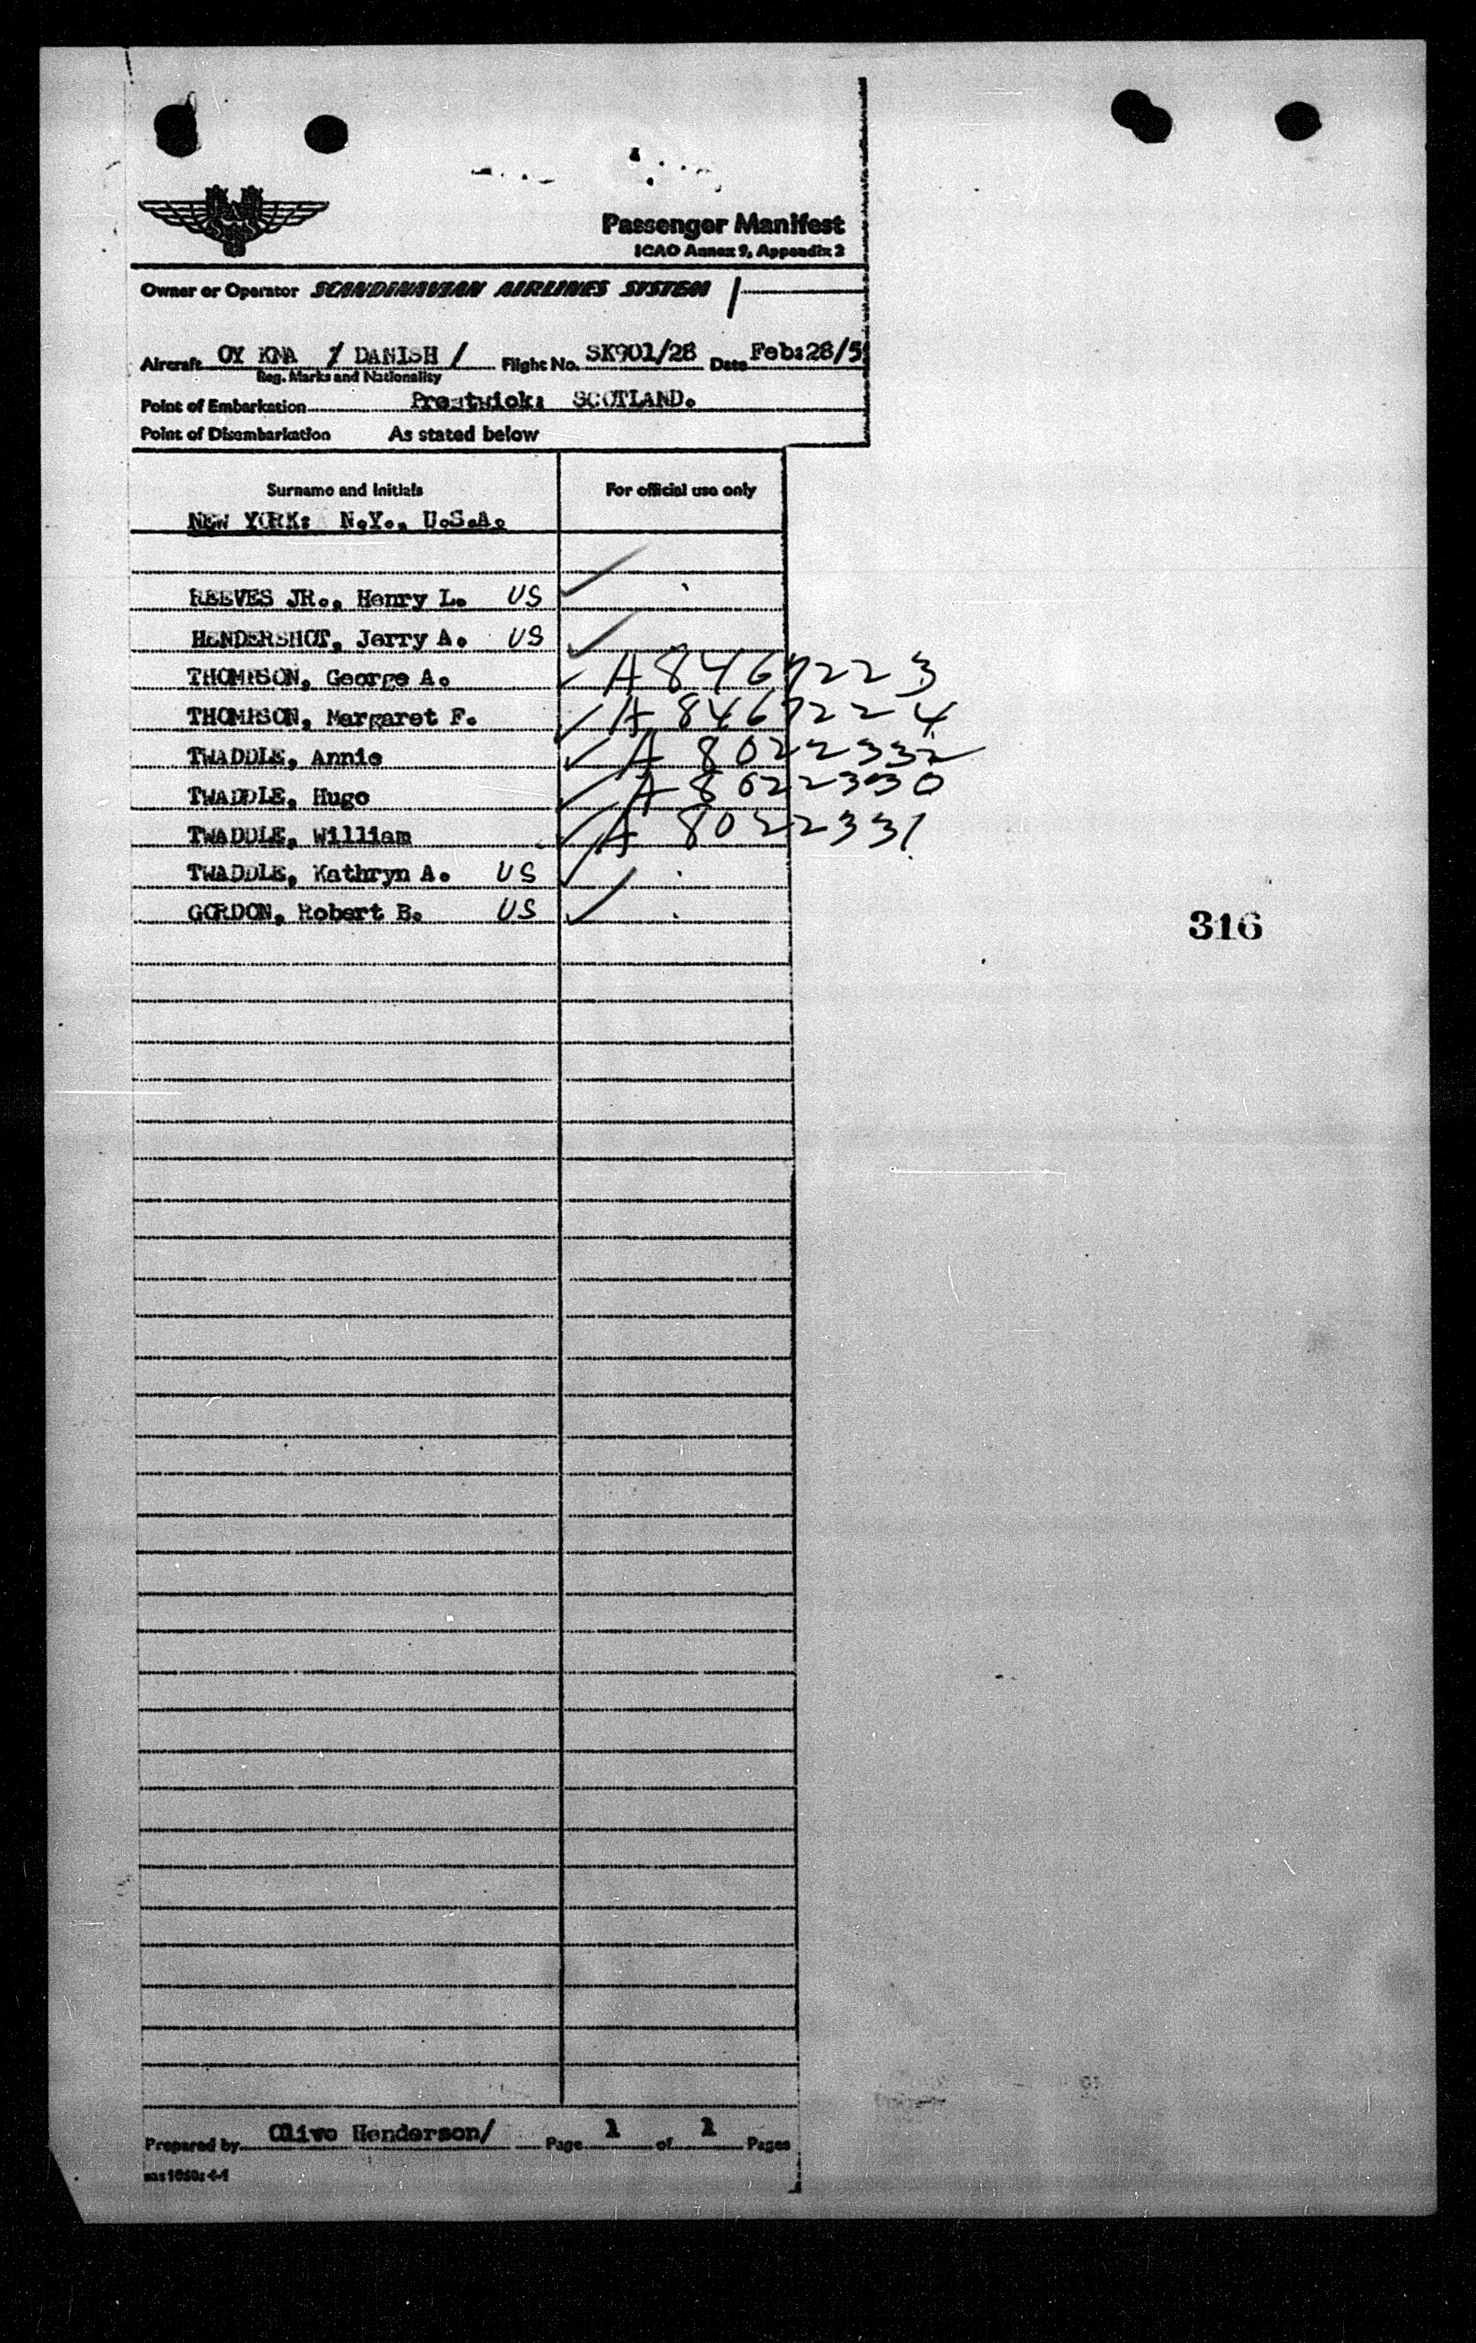 Passenger Manifest
ICAO Annex 9, Appendix 2
Owner or Operator SCANDINAVIAN AIRLINES SYSTEM /
Aircraft OY KNA / DANISH / Flight No. SK901/28 Date Feb:28/5
Reg. Marks and Nationality
Point of Embarkation Prestwick: SCOTLAND.
Point of Disembarkation As stated below
Surname and Initials For official use only
NEW YORK: N.Y., U.S.A.
REEVES JR., Henry L. US
HENDERSHOT, Jerry A. US
THOMPSON, George A. A 8467223
THOMPSON, Margaret F. A 8467224
TWADDLE, Annie A 8022332
TWADDLE, Hugo A 8022330
TWADDLE, William A 8022331
TWADDLE, Kathryn A. US
GORDON, Robert B. US
316
Prepared by Olive Henderson/ Page 1 of 1 Pages